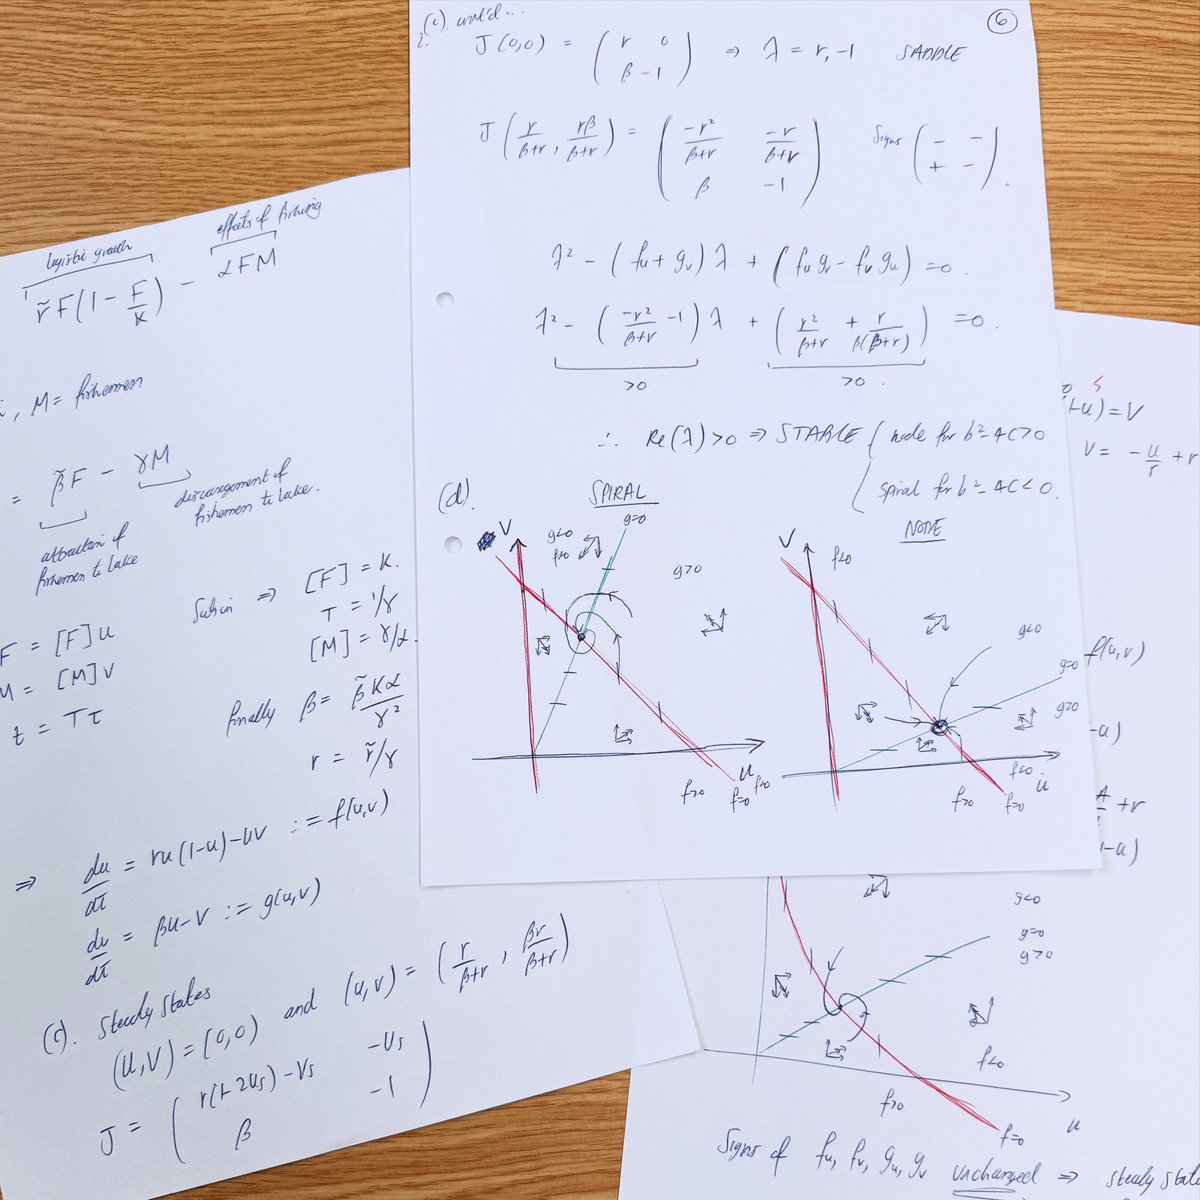 2.(c). cont'd...
6
J(0,0) = ( r 0 ; β -1 ) ⇒ λ = r, -1 SADDLE
J( r/β+r , rβ/β+r ) = ( -r²/β+r -r/β+r ; β -1 ) Signs ( - - ; + - ).
λ² - (fu + gv) λ + (fu gv - fv gu) = 0.
λ² - ( -r²/β+r - 1 ) λ + ( r²/β+r + r/β(β+r) ) = 0.
>0 >0.
∴ Re(λ) > 0 ⇒ STABLE { node for b²-4C>0
spiral for b²-4C<0.
(d). SPIRAL
NODE
V
g<0
f>0
g=0
g>0
f>0
u
f=0
f<0
V
f<0
g<0
g=0
g>0
f<0
u
f>0
f=0
logistic growth
effects of fishing
r̃F(1 - F/K) - αFM
, M = fishermen
= β̃F - γM
attraction of
fishermen to lake
discouragement of
fishermen to lake.
F = [F]u
M = [M]v
t = Tτ
⇒ [F] = K.
T = 1/γ
[M] = γ/α.
finally β = β̃Kα/γ²
r = r̃/γ
⇒ du/dτ = ru(1-u) - uv := f(u,v)
dv/dτ = βu - v := g(u,v)
(c). Steady States
(u,v) = (0,0) and (u,v) = ( r/β+r , βr/β+r )
J = ( r(1-2us) - vs -us ; β -1 )
-u) = V
V = -u/r + r
f(u,v)
-u)
+ r
1-u)
g<0
g=0
g>0
f<0
f>0
f=0
u
Signs of fu, fv, gu, gv unchanged ⇒ steady state